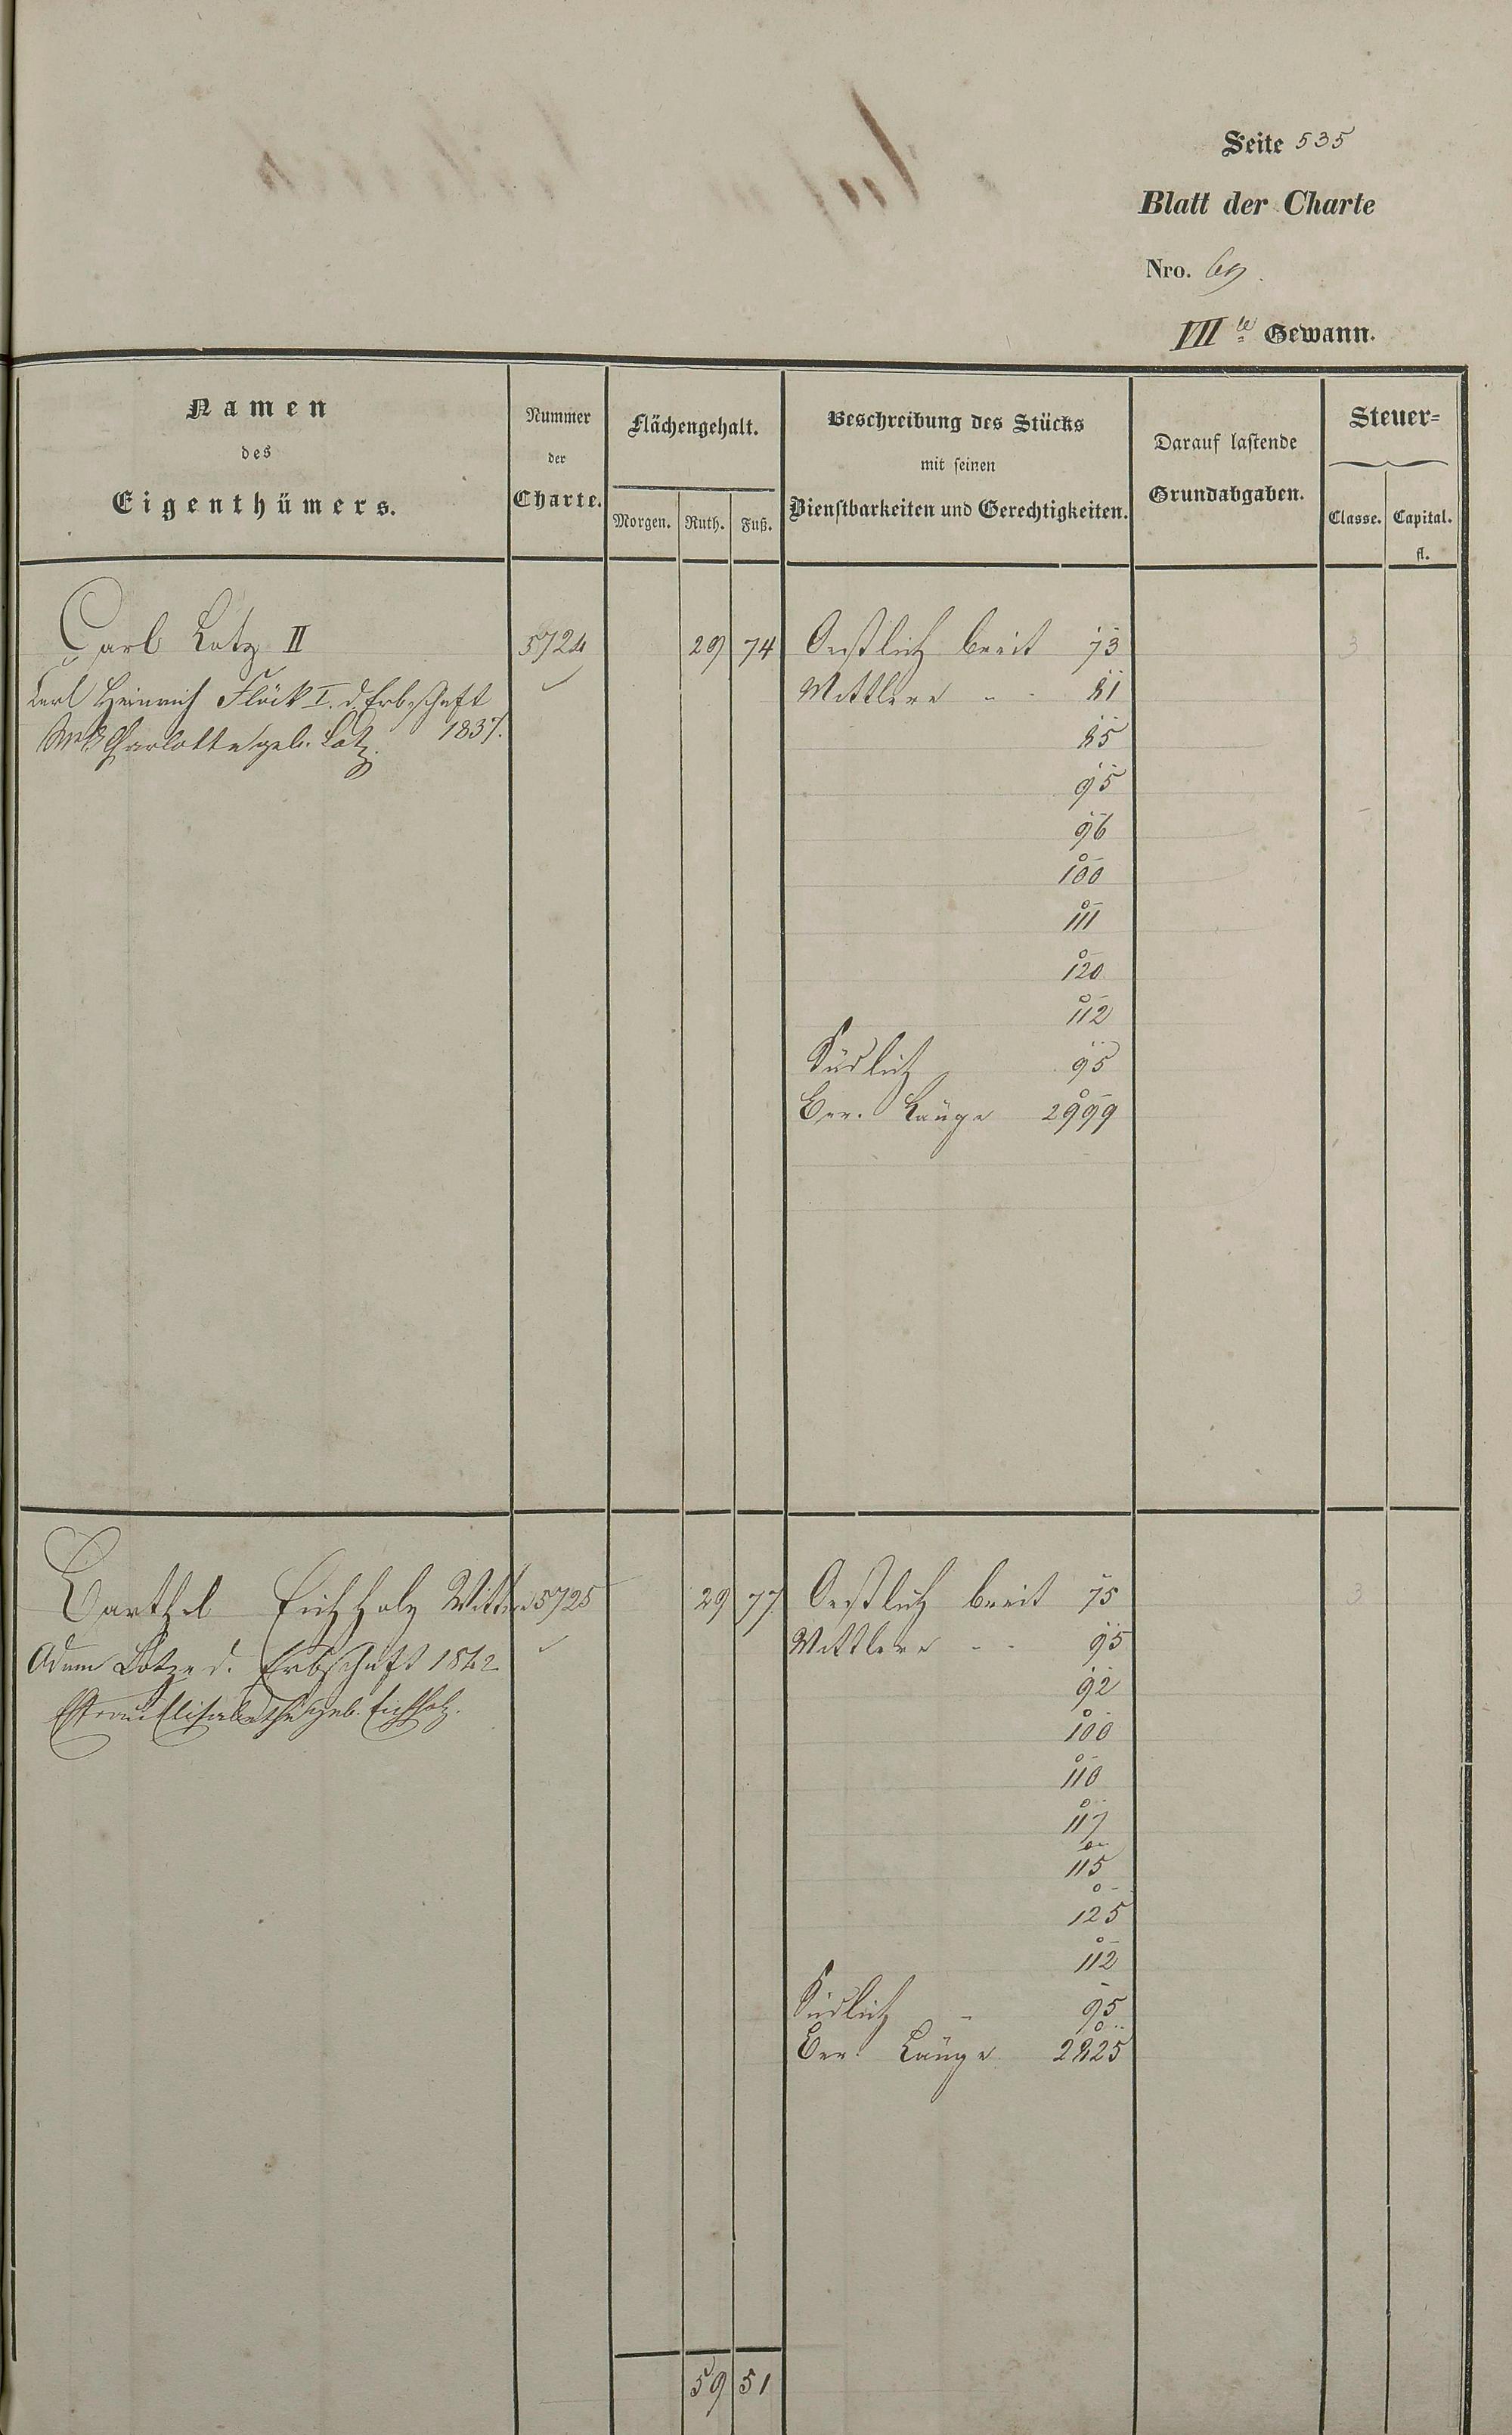 Seite 535
Blatt der Charte
Nro. 69.
VII te Gewann.
Namen
des
Eigenthümers.
Nummer
der
Charte.
Flächengehalt.
Morgen. Ruth. Fuß.
Beschreibung des Stücks
mit seinen
Dienstbarkeiten und Gerechtigkeiten.
Darauf lastende
Grundabgaben.
Steuer=
Classe. Capital.
fl.
Carl Lotz II 5724 29 74 Oestlich breit 73 3
Carl Heinrich Flöck I. d. Erbschaft Mittlere - - 81
Charlotte geb. Lotz. 1837. 85
95
96
100
111
120
112
Südlich 95
Ber. Länge 2999
Barthel Eichholz Wittwe 5725 29 77 Oestlich breit 75 3
Adam Lotz d. Erbschaft 1842 Mittlere - - 95
Ehefrau Elisabetha geb. Eichholz. 92
100
110
117
115
125
112
Südlich - 95
Ber. Länge 2825
59 51